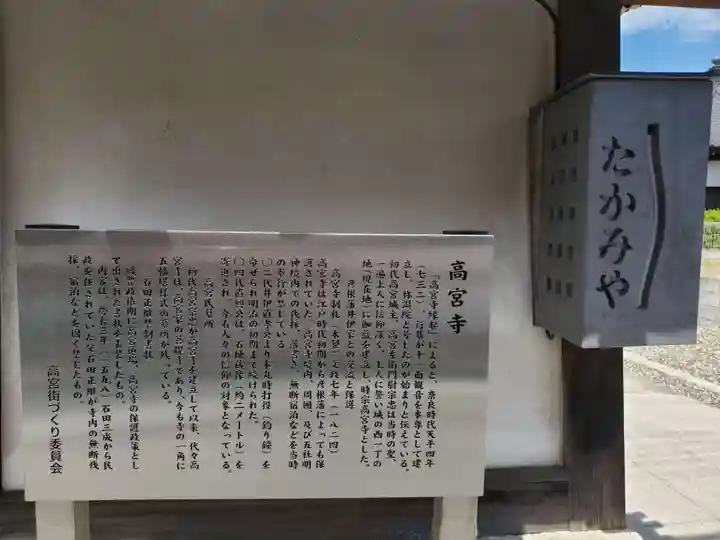 高宮寺
「高宮寺縁起」によると、奈良時代天平四年
(七三二)、行基が十一面観音を本尊として建
立し、称讃院と号したのが始まりと伝えている。
初代高宮城主、高宮左衛門尉宗忠は当時の聖、
一遍上人に信仰深く、上人に誓い城の西一丁の
地(現在地)に伽藍を建立し、時宗高宮寺とした。
彦根藩井伊家の安堵と保護
高宮寺制札(木製)文政七年(一八二四)
高宮寺は江戸時代初期から彦根藩によっても保
護されていた。高宮寺境内、周囲、及び五社明
神境内での伐採、落書き、無断宿泊などを当時
の奉行が禁じている。
〇二代井伊直孝公より本丸時打役(釣り鐘)を
命ぜられ明治の初期まで続けられた。
〇四代直興公は、石地蔵像(約二メートル)を
寄進され、今も人々の信仰の対象となっている。
高宮氏墓所
初代高宮宗忠が高宮寺を建立して以来、代々高
宮寺は、高宮家の菩提寺であり、今も寺の一角に
五輪塔様式の墓所が残っている。
石田正継禁制書状
織豊政権期に高宮地場、高宮寺の保護政策とし
て出された書状を表装したもの。
内容は、慶長三年(一五九八)石田三成から民
政を任されていた父石田正継が寺内の無断伐
採、宿泊などを固く禁じたもの。
高宮街づくり委員会
たかみや